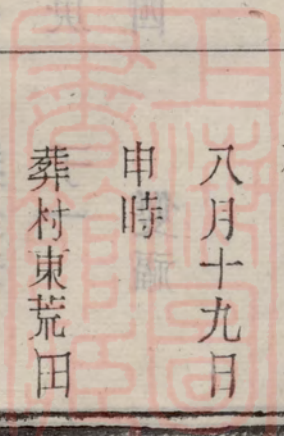 八月十九日
申時
葬村東荒田